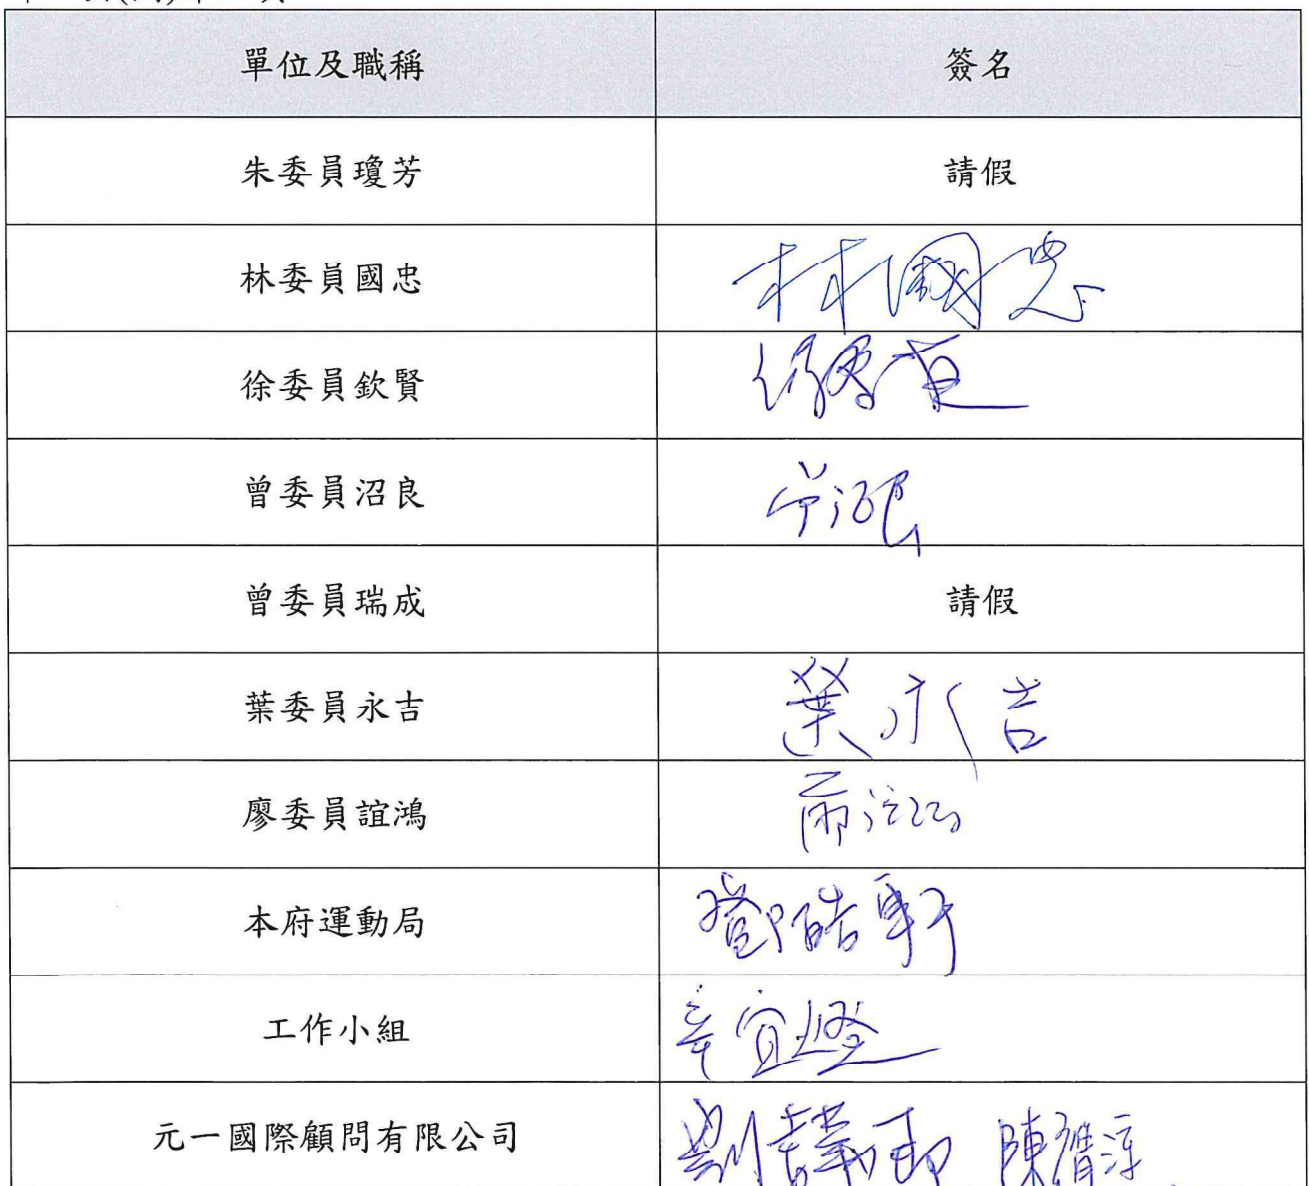 單位及職稱 簽名
朱委員瓊芳 請假
林委員國忠 林國忠
徐委員欽賢
曾委員沼良 曾沼良
曾委員瑞成 請假
葉委員永吉 葉永吉
廖委員誼鴻
本府運動局 鄧皓軒
工作小組
元一國際顧問有限公司